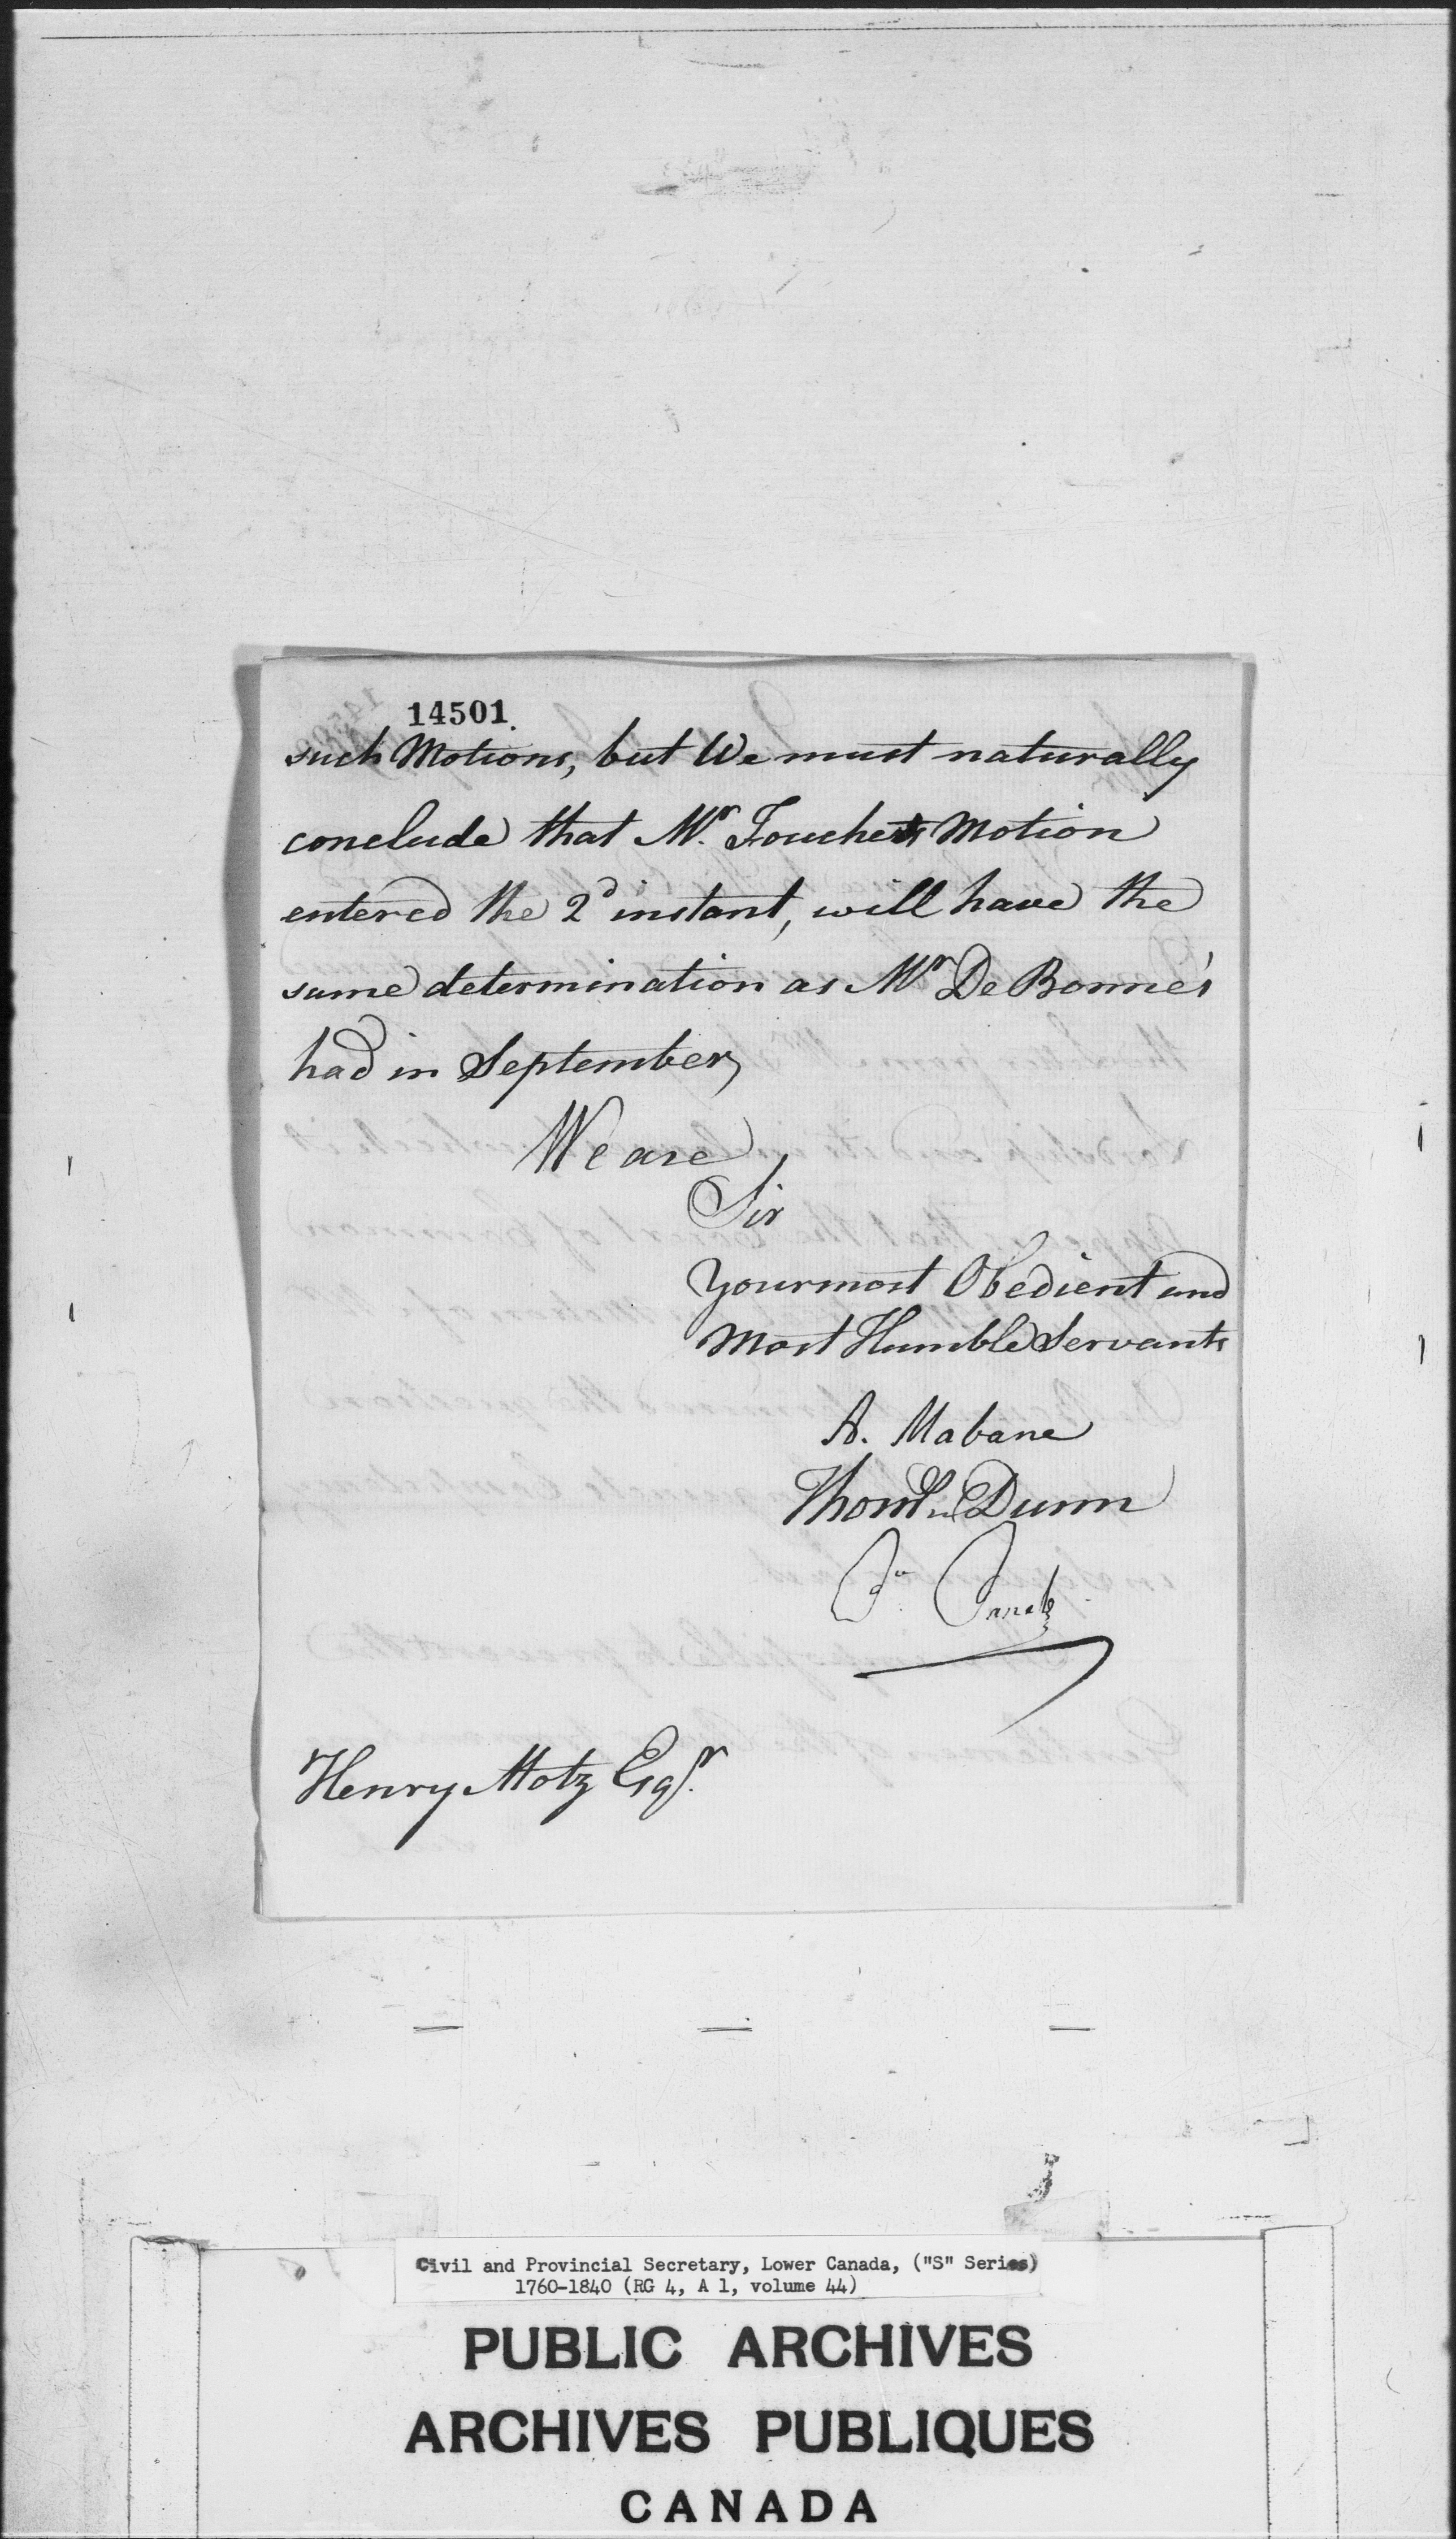 14501
such Motions, but We must naturally
conclude that Mr. Fouchets Motion
entered the 2d instant, will have the
same determination as Mr De Bonne's
had in September,
We are
Sir
Your most Obedient and
Most Humble Servants
A. Mabane
Thoms Dunn
P. Panet
Henry Motz Esqr.
Civil and Provincial Secretary, Lower Canada, ("S" Series)
1760-1840 (RG 4, A 1, volume 44)
PUBLIC ARCHIVES
ARCHIVES PUBLIQUES
CANADA